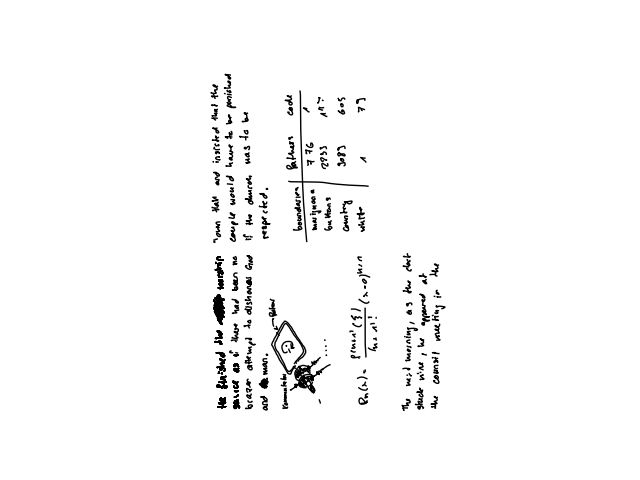 He finished the worship
service as if there had been no
brazen attempt to dishonor God
and man.
Rn(x) = f(n+1)(ξ) / (n+1)! (x-a)n+1
The next morning, as the clock
struck nine, he appeared at
the council meeting in the
town hall and insisted that the
couple would have to be punished
if the church was to be
respected.
boundaries Pathers code
marijuana 776 1
buttons 2933 147
country 3083 605
white 1 79